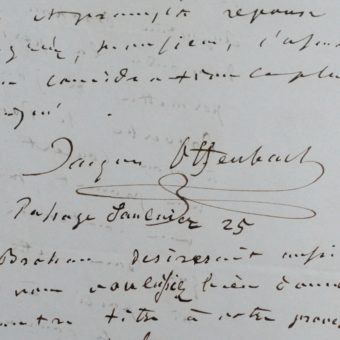 et prompte reponse
monsieur, l'assu
consideration la plus
Jacques Offenbach
Passage Saulnier 25
Brohan desirerait aussi
vous vouliez bien donner
titre à votre